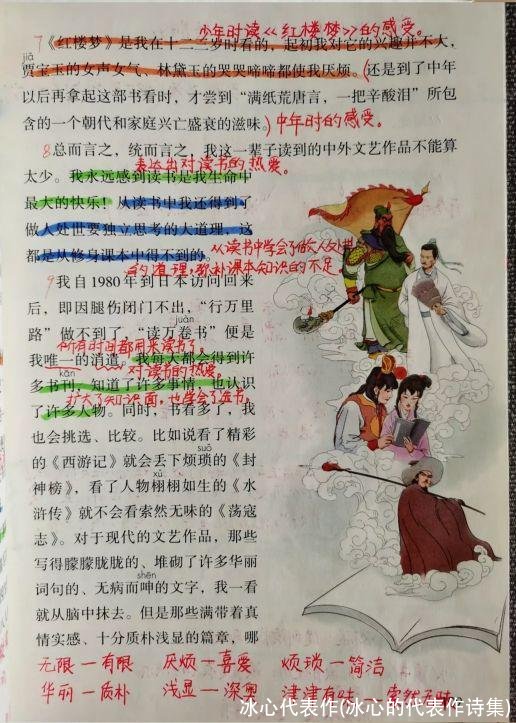 少年时读<<红楼梦>>的感受。
7《红楼梦》是我在十二三岁时看的，起初我对它的兴趣并不大，
jiǎ
贾宝玉的女声女气，林黛玉的哭哭啼啼都使我厌烦。(还是到了中年
以后再拿起这部书看时，才尝到“满纸荒唐言，一把辛酸泪”所包
含的一个朝代和家庭兴亡盛衰的滋味。)中年时的感受。
8总而言之，统而言之，我这一辈子读到的中外文艺作品不能算
表达出对读书的热爱。
太少。我永远感到读书是我生命中
最大的快乐！从读书中我还得到了
做人处世要独立思考的大道理，这
都是从修身课本中得不到的。从读书中学会了做人处世
的道理，弥补课本知识的不足。
9我自1980年到日本访问回来
后，即因腿伤闭门不出，“行万里
juàn
路”做不到了，“读万卷书”便是
所有时间都用来读书了。
我唯一的消遣。我每天都会得到许
对读书的热爱。
kān
多书刊，知道了许多事情，也认识
扩大了知识面，也学会了选书。
了许多人物。同时，书看多了，我
也会挑选、比较。比如说看了精彩
suǒ
的《西游记》就会丢下烦琐的《封
xǔ
神榜》，看了人物栩栩如生的《水
浒传》就不会看索然无味的《荡寇
志》。对于现代的文艺作品，那些
写得朦朦胧胧的、堆砌了许多华丽
shēn
词句的、无病而呻的文字，我一看
就从脑中抹去。但是那些满带着真
情实感、十分质朴浅显的篇章，哪
无限—有限 厌烦—喜爱 烦琐—简洁
华丽—质朴 浅显—深奥 津津有味—索然无味
冰心代表作(冰心的代表作诗集)